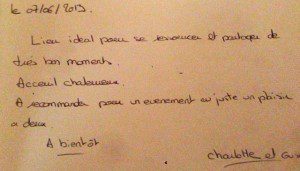 le 07/06/2013.
Lieu ideal pour se ressourcer et partager de
tres bon moments.
Acceuil chaleureux.
A recommander pour un evenement ou juste un plaisir
a deux
A bientôt
Charlotte et